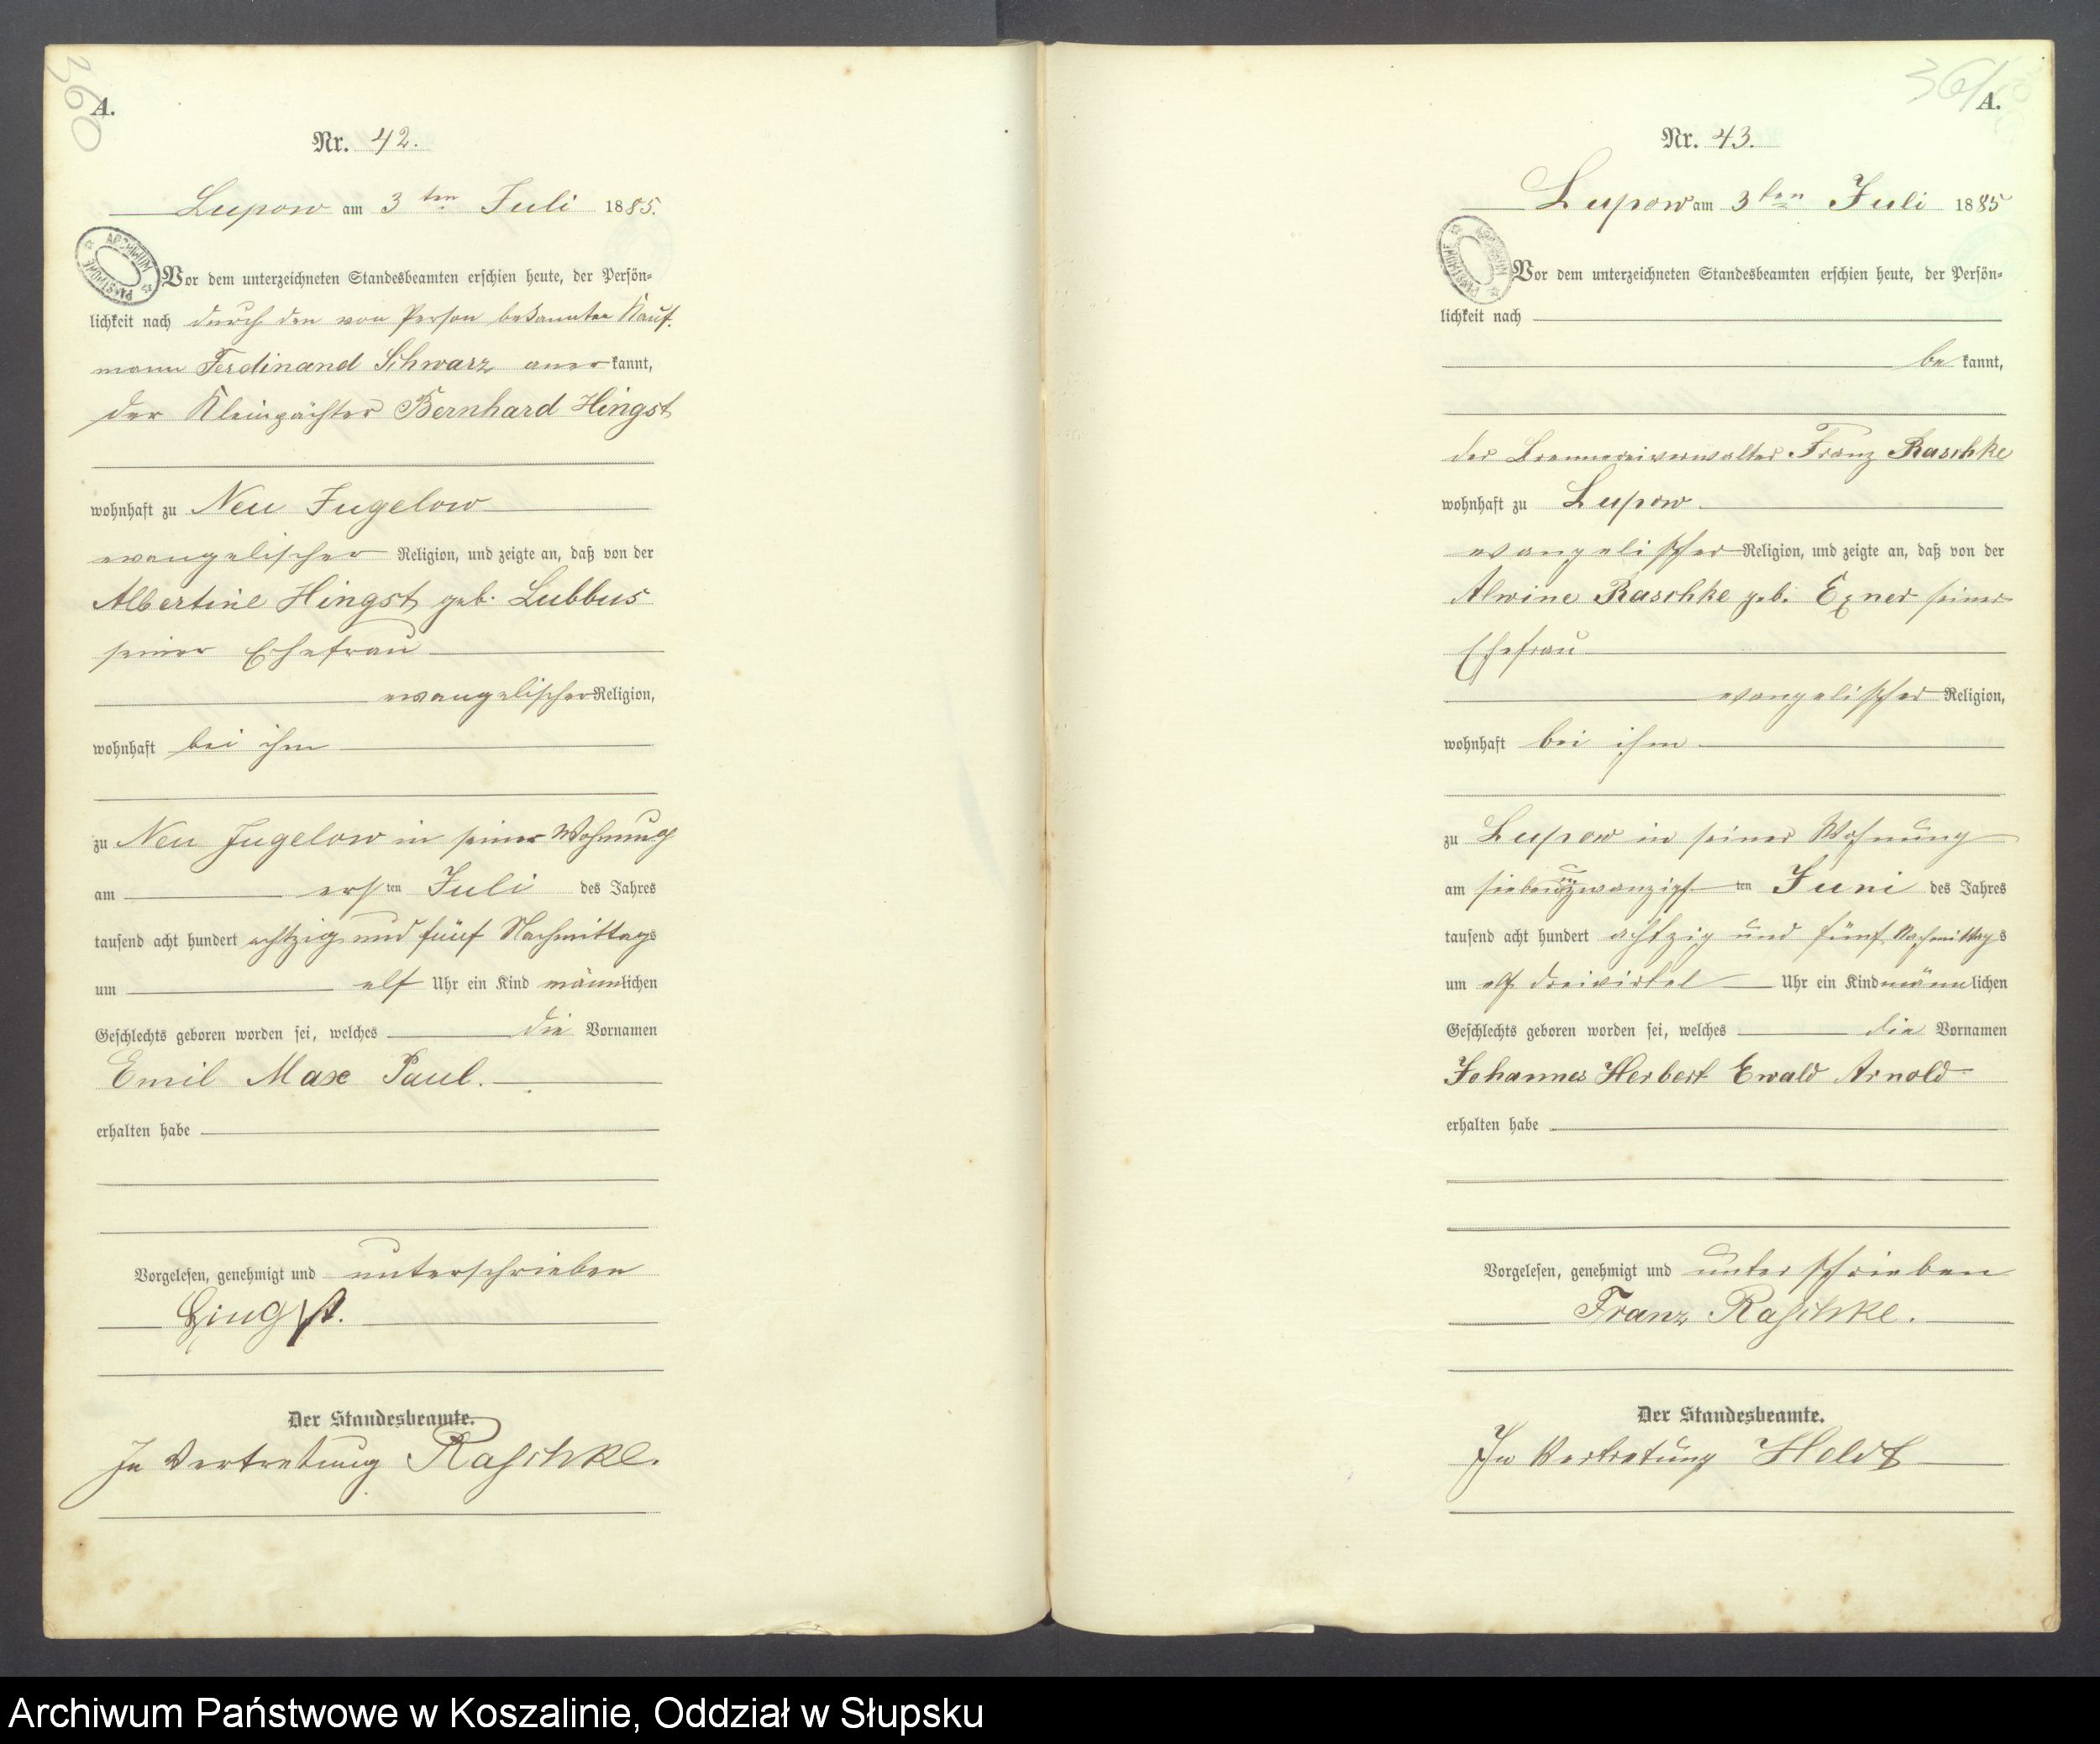 360
A.
Nr. 42.
Lupow am 3 ten Juli 1885.
ARCHIWUM PAŃSTWOWE
Vor dem unterzeichneten Standesbeamten erschien heute, der Persön-
lichkeit nach durch den von Person bekannten Kauf-
mann Ferdinand Schwarz aner kannt,
der Kleinpächter Bernhard Hingst
wohnhaft zu Neu Jugelow
evangelischer Religion, und zeigte an, daß von der
Albertine Hingst geb. Lubbus
seiner Ehefrau
evangelischer Religion,
wohnhaft bei ihm
zu Neu Jugelow in seiner Wohnung
am ersten Juli des Jahres
tausend acht hundert achtzig und fünf Nachmittags
um elf Uhr ein Kind männlichen
Geschlechts geboren worden sei, welches die Vornamen
Emil Max Paul.
erhalten habe
Vorgelesen, genehmigt und unterschrieben
Hingst.
Der Standesbeamte.
In Vertretung Raschke.
361
A.
Nr. 43.
Lupow am 3 ten Juli 1885
ARCHIWUM PAŃSTWOWE
Vor dem unterzeichneten Standesbeamten erschien heute, der Persön-
lichkeit nach
be kannt,
der Brennereiverwalter Franz Raschke
wohnhaft zu Lupow
evangelischer Religion, und zeigte an, daß von der
Alwine Raschke geb. Exner seiner
Ehefrau
evangelischer Religion,
wohnhaft bei ihm
zu Lupow in seiner Wohnung
am siebenundzwanzigsten Juni des Jahres
tausend acht hundert achtzig und fünf Nachmittags
um elf dreiviertel Uhr ein Kind männlichen
Geschlechts geboren worden sei, welches die Vornamen
Johannes Herbert Ewald Arnold
erhalten habe
Vorgelesen, genehmigt und unterschrieben
Franz Raschke.
Der Standesbeamte.
In Vertretung Holdt
Archiwum Państwowe w Koszalinie, Oddział w Słupsku